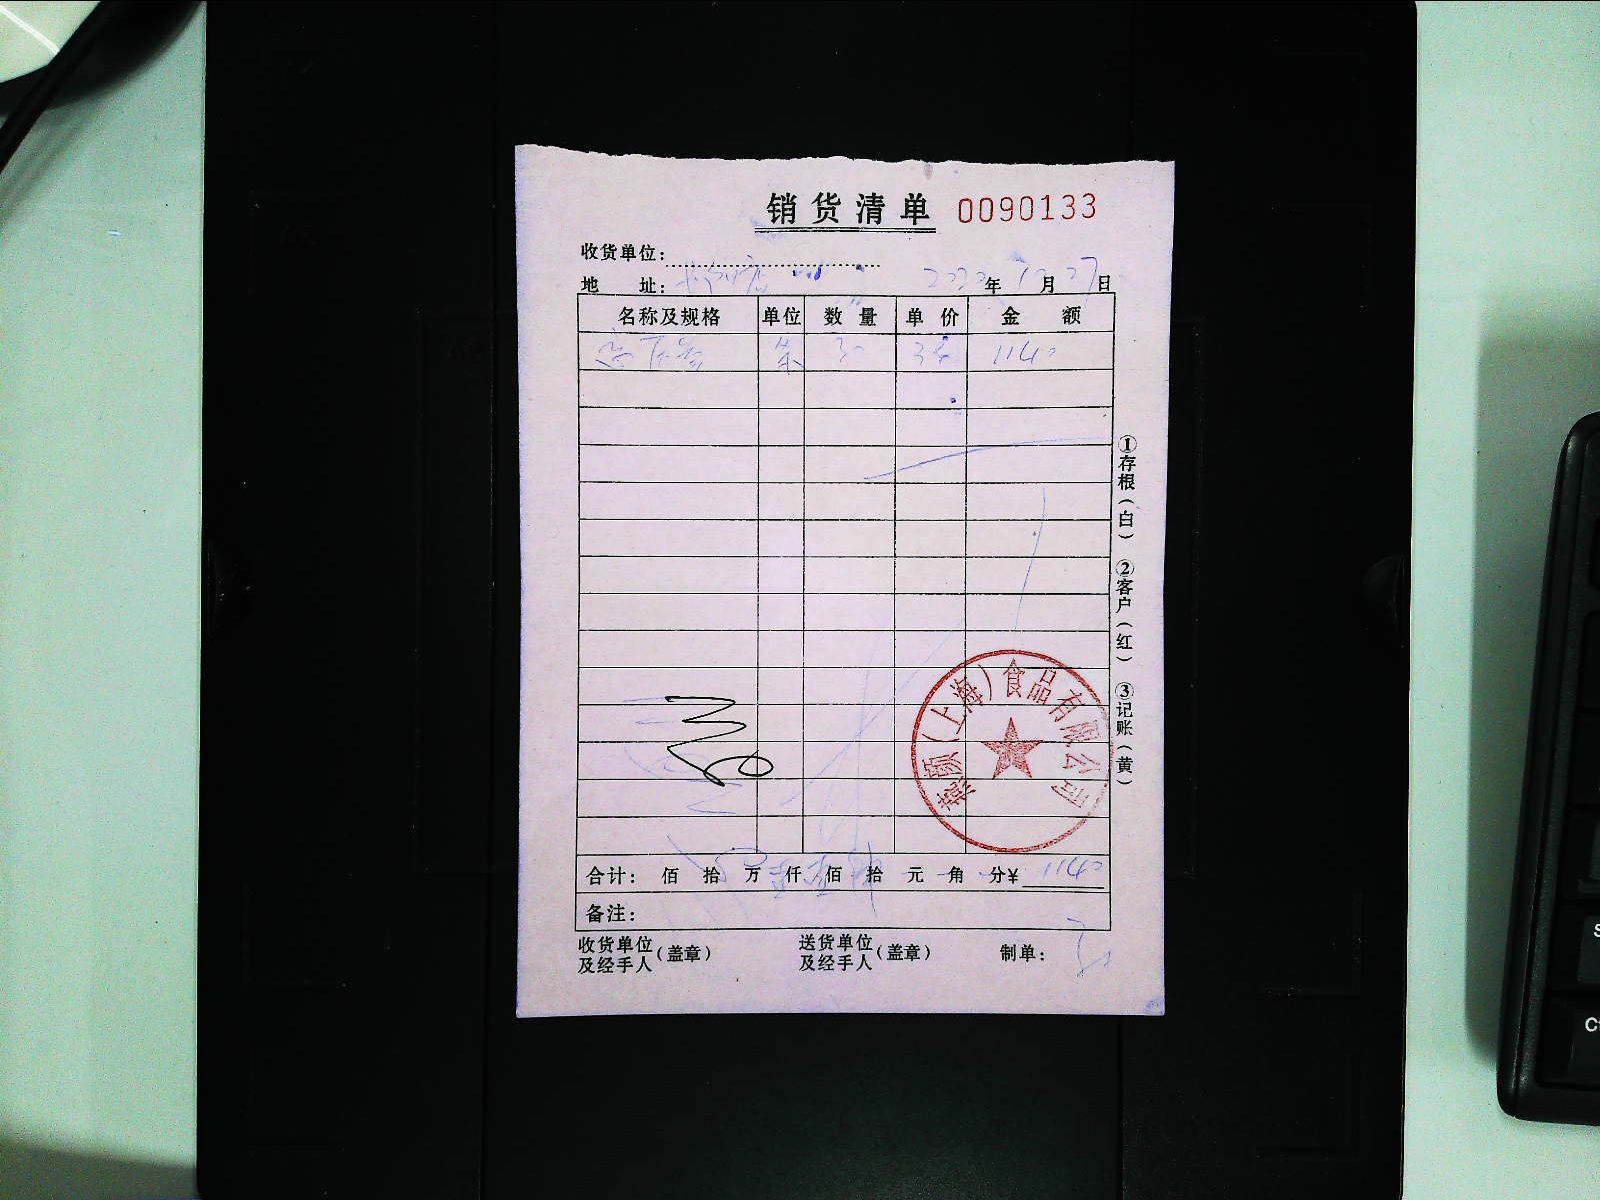 销货清单 0090133
收货单位：
地 址： 年 月 27 日
名称及规格 单位 数量 单价 金额
条 30 38 1140
合计： 佰 拾 万 仟 佰 拾 元 角 分¥ 1140
备注：
收货单位及经手人（盖章） 送货单位及经手人（盖章） 制单：
①存根（白） ②客户（红） ③记账（黄）
（上海）食品有限公司
S